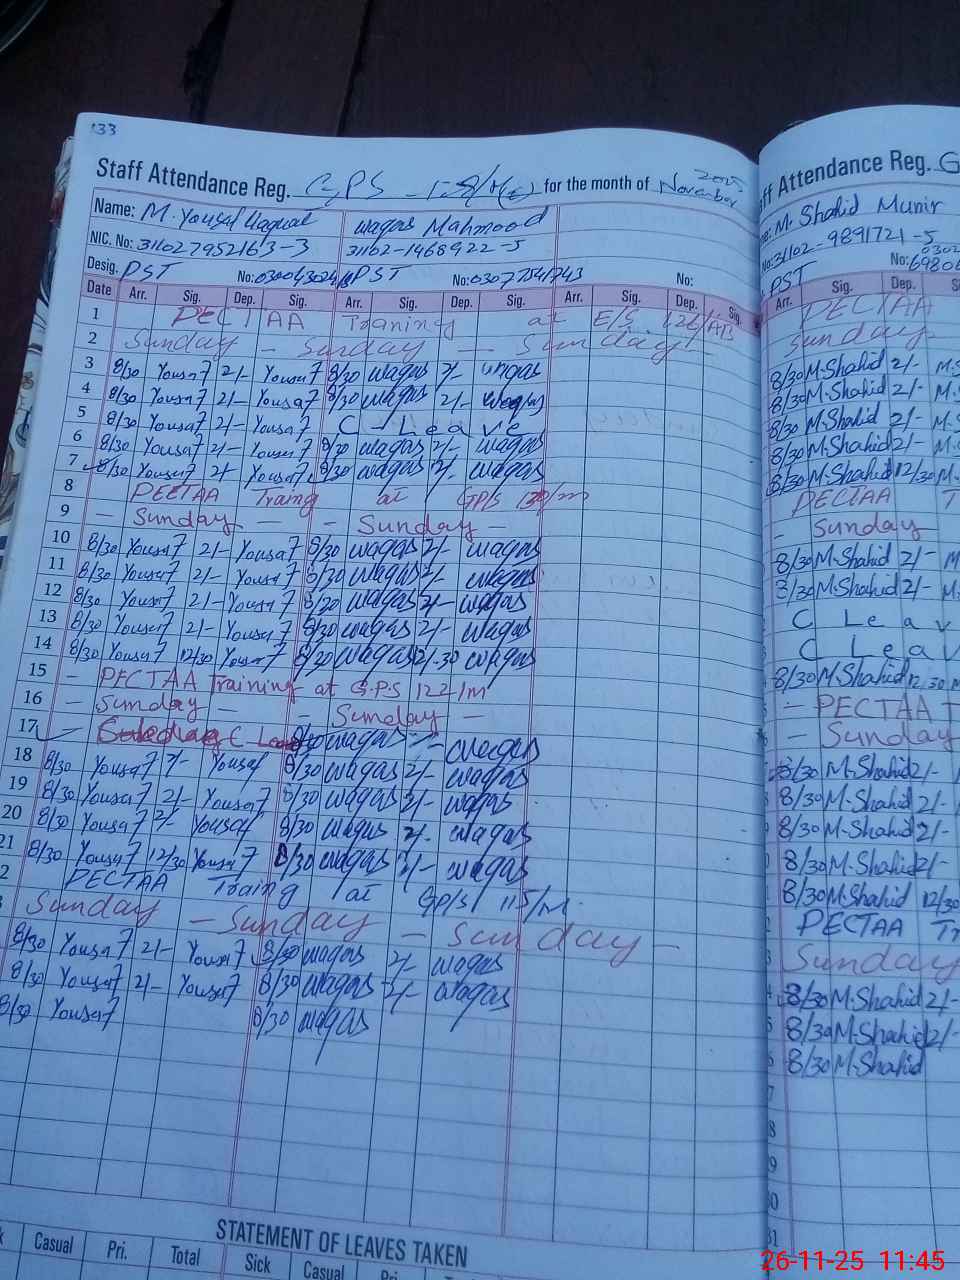 133
Staff Attendance Reg. GPS for the month of November 2025
Name: M. Yousaf Waqas Mahmood
NIC. No: 3110279521 63-3 31102-1468922-5
Desig. PST No: PST No: 03077541743 No:
Date Arr. Sig. Dep. Sig. Arr. Sig. Dep. Sig. Arr. Sig. Dep. Sig.
1 PECTAA Traning at E/S
2 Sunday - Sunday - Sunday -
3 8/30 Yousaf 2/- Yousaf 8/30 waqas 2/- waqas
4 8/30 Yousaf 2/- Yousaf 8/30 waqas 2/- waqas
5 8/30 Yousaf 2/- Yousaf C - Leave
6 8/30 Yousaf 2/- Yousaf 8/30 waqas 2/- waqas
7 8/30 Yousaf 2/- Yousaf 8/30 waqas 2/- waqas
8 PECTAA Traing at GPS
9 - Sunday - - Sunday -
10 8/30 Yousaf 2/- Yousaf 8/30 waqas 2/- waqas
11 8/30 Yousaf 2/- Yousaf 8/30 waqas 2/- waqas
12 8/30 Yousaf 2/- Yousaf 8/30 waqas 2/- waqas
13 8/30 Yousaf 2/- Yousaf 8/30 waqas 2/- waqas
14 8/30 Yousaf 12/30 Yousaf 8/30 waqas waqas
15 - PECTAA Training at G.P.S 122-1m
16 - Sunday - - Sunday -
17 C Leave 8/30 waqas waqas
18 8/30 Yousaf 2/- Yousaf 8/30 waqas 2/- waqas
19 8/30 Yousaf 2/- Yousaf 8/30 waqas 2/- waqas
20 8/30 Yousaf 2/- Yousaf 8/30 waqas 2/- waqas
21 8/30 Yousaf 12/30 Yousaf 8/30 waqas 2/- waqas
2 PECTAA Traing at GPS 115/M.
Sunday - Sunday - Sunday -
8/30 Yousaf 2/- Yousaf 8/30 waqas 2/- waqas
8/30 Yousaf 2/- Yousaf 8/30 waqas 2/- waqas
8/30 Yousaf 8/30 waqas
STATEMENT OF LEAVES TAKEN
Casual Pri. Total Sick Casual Pri.
ff Attendance Reg. G
M. Shahid Munir
No: 31102-9891721-5
PST No:
Arr. Sig. Dep.
PECTAA
Sunday
8/30 M.Shahid 2/- M.S
8/30 M.Shahid 2/- M.
8/30 M.Shahid 2/- M.
8/30 M.Shahid 2/- M.
8/30 M.Shahid 12/30 M.
PECTAA T
- Sunday
8/30 M.Shahid 2/- M
8/30 M.Shahid 2/- M.
C Leav
C Leav
8/30 M.Shahid 12.30 M
- PECTAA T
- Sunday
8/30 M.Shahid 2/-
8/30 M.Shahid 2/-
8/30 M.Shahid 2/-
8/30 M.Shahid 2/-
8/30 M.Shahid 12/30
PECTAA Tr
Sunday
8/30 M.Shahid 2/-
8/30 M.Shahid 2/-
8/30 M.Shahid
7
8
9
0
31
26-11-25 11:45